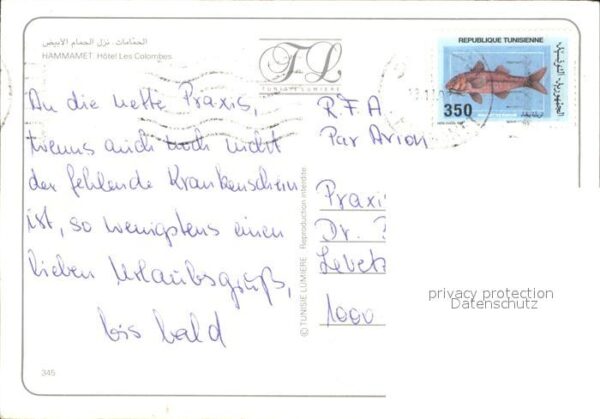 الحمامات. نزل الحمام الأبيض
HAMMAMET. Hôtel Les Colombes
TL
TUNISIE LUMIERE
REPUBLIQUE TUNISIENNE
350
An die nette Praxis,
wenns auch noch nicht
der fehlende Krankenschein
ist, so wenigstens einen
lieben Urlaubsgruß,
bis bald
R.F.A
Par Avion
Praxis
Dr. ?
Levetz
1000
© TUNISIE LUMIERE Reproduction interdite
privacy protection
Datenschutz
345